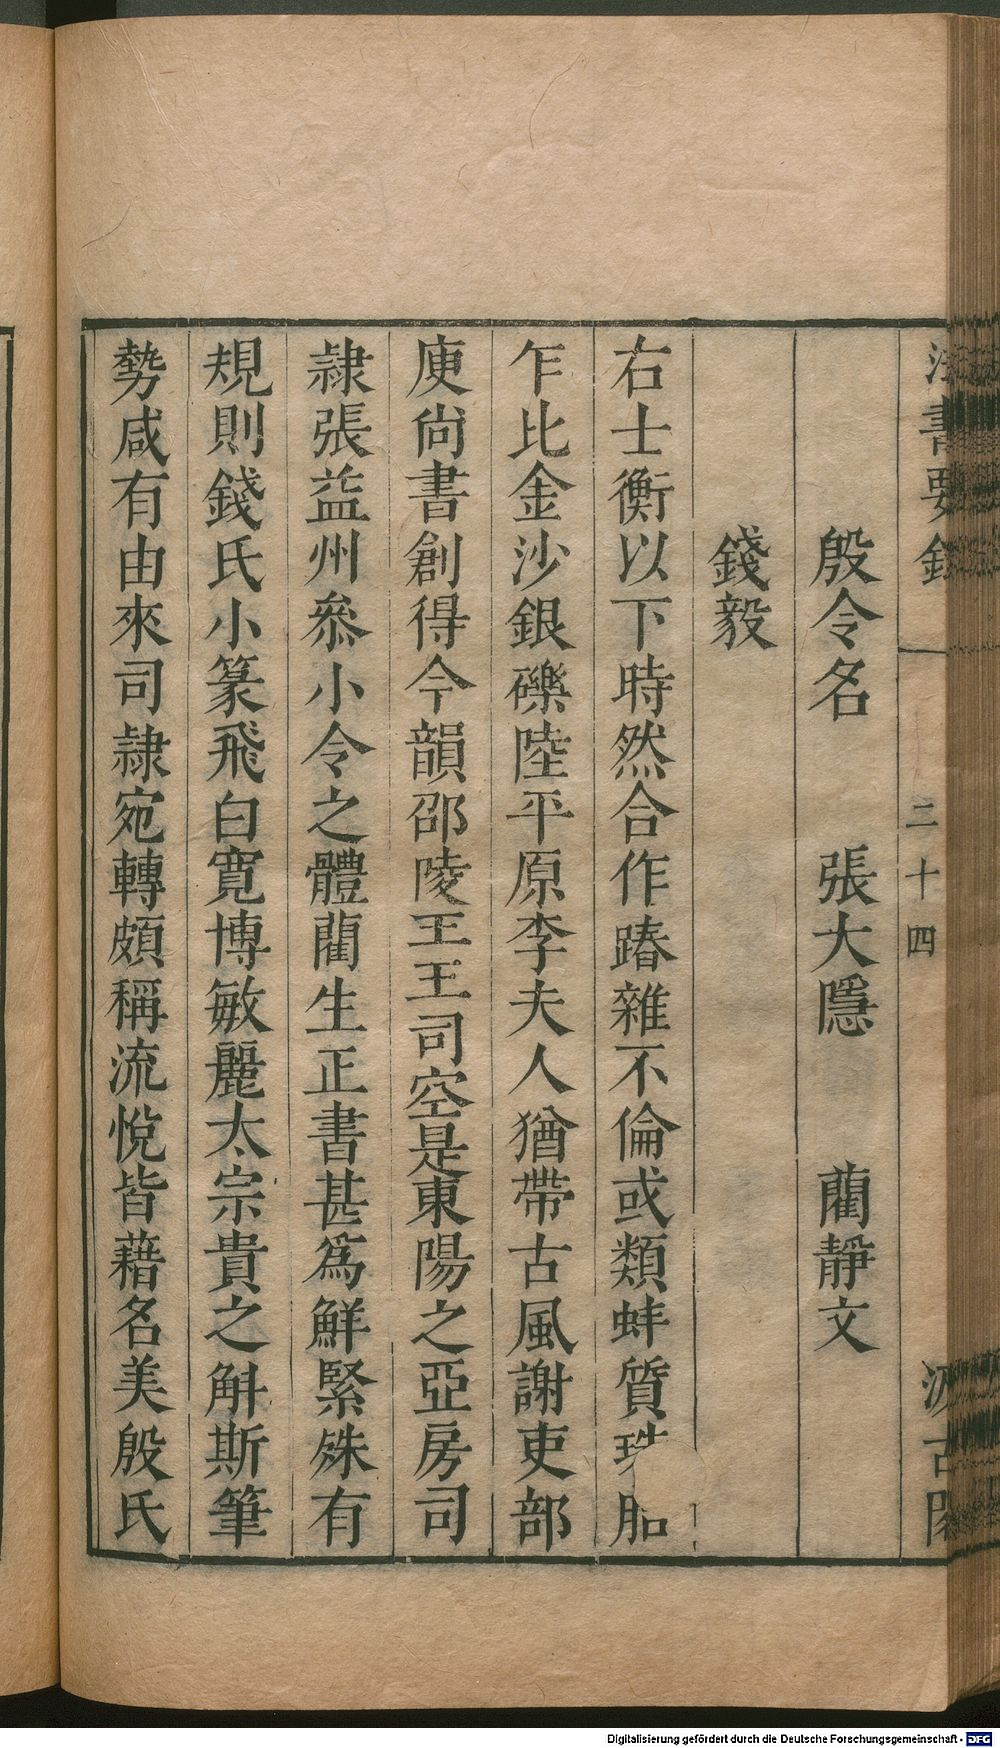 法書要錄 二十四 汲古閣
殷令名 張大隱 藺靜文
錢毅
右士衡以下時然合作踳雜不倫或類蚌質珠胎
乍比金沙銀礫陸平原李夫人猶帶古風謝吏部
庾尚書創得今韻邵陵王王司空是東陽之亞房司
隷張益州叅小令之體藺生正書甚爲鮮緊殊有
規則錢氏小篆飛白寬博敏麗太宗貴之斛斯筆
勢咸有由來司隷宛轉頗稱流悅皆藉名美殷氏
Digitalisierung gefördert durch die Deutsche Forschungsgemeinschaft - DFG